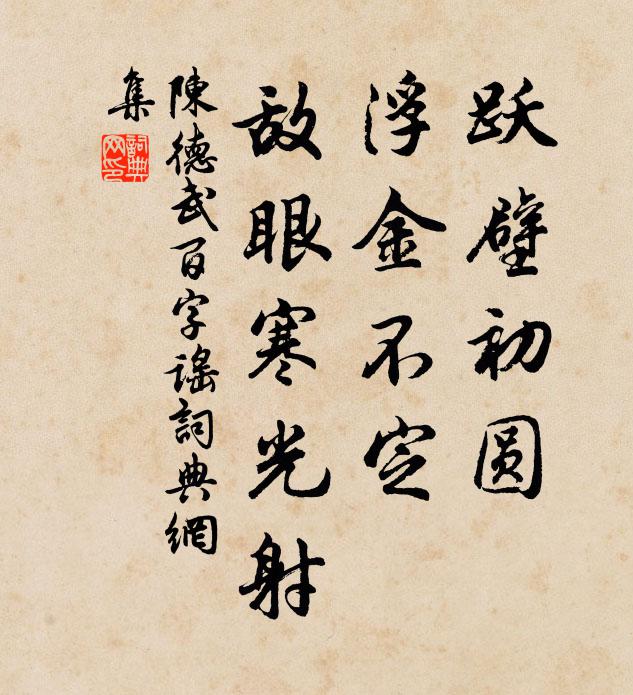 跃壁初圆
浮金不定
敌眼寒光射
陳德武百字謠詞典網
集
詞典
网印